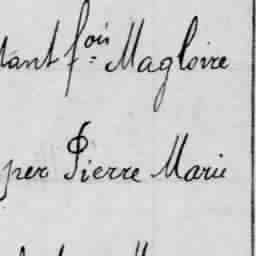 tant f.ois Magloire
per Pierre Marie